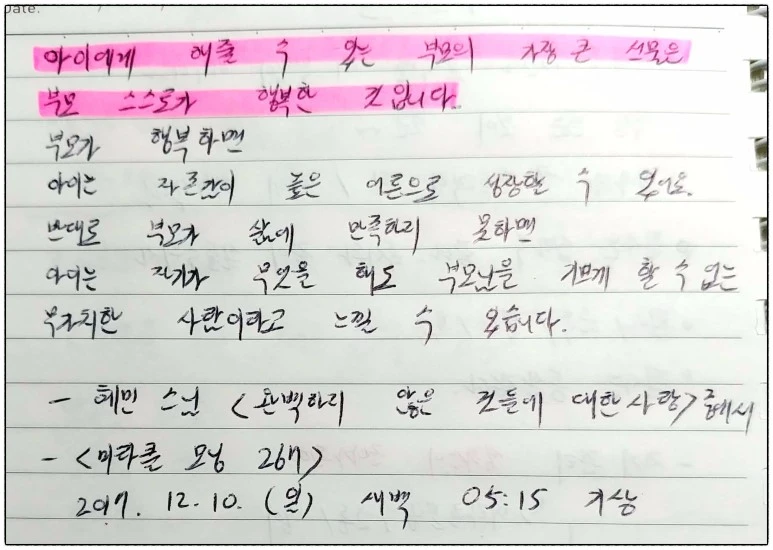 Date.
아이에게 해줄 수 있는 부모의 가장 큰 선물은
부모 스스로가 행복한 것입니다.
부모가 행복하면
아이는 자존감이 높은 어른으로 성장할 수 있어요.
반대로 부모가 삶에 만족하지 못하면
아이는 자기가 무엇을 해도 부모님을 기쁘게 할 수 없는
무가치한 사람이라고 느낄 수 있습니다.
- 혜민 스님 <완벽하지 않은 것들에 대한 사랑> 중에서
- <미라클 모닝 267>
2017. 12. 10. (일) 새벽 05:15 기상